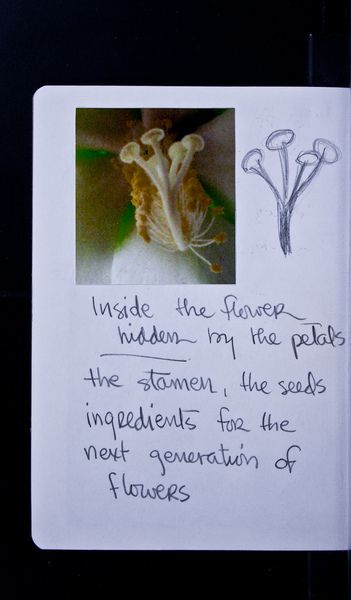 Inside the flower
hidden by the petals
the stamen, the seeds
ingredients for the
next generation of
flowers